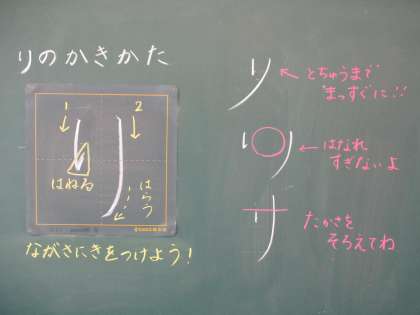 りのかきかた
1
2
り
はねる
はらう
ながさにきをつけよう！
り
とちゅうまで
まっすぐに！！
り
はなれ
すぎないよ
り
たかさを
そろえてね